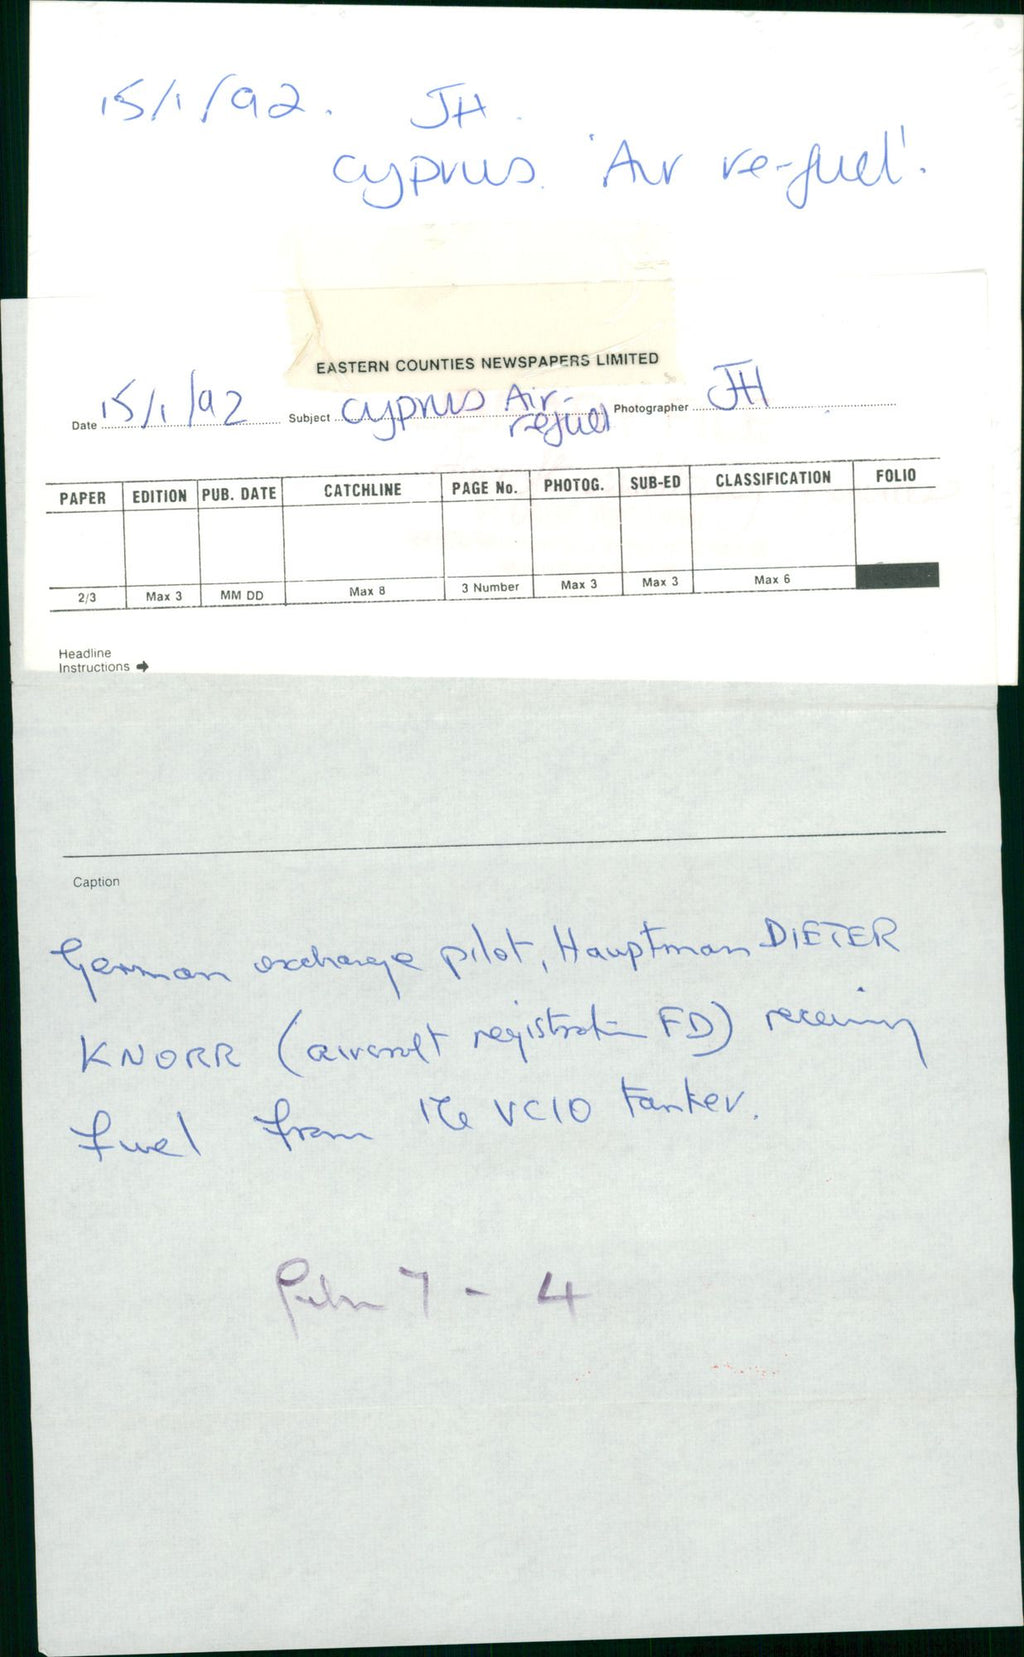 15/1/92. JH.
Cyprus. 'Air re-fuel'.
EASTERN COUNTIES NEWSPAPERS LIMITED
Date 15/1/92 Subject Cyprus Air- Photographer JH
refuel
PAPER EDITION PUB. DATE CATCHLINE PAGE No. PHOTOG. SUB-ED CLASSIFICATION FOLIO
2/3 Max 3 MM DD Max 8 3 Number Max 3 Max 3 Max 6
Headline
Instructions →
Caption
German exchange pilot, Hauptman DIETER
KNORR (aircraft registration FD) receiving
fuel from the VC10 tanker.
7 - 4